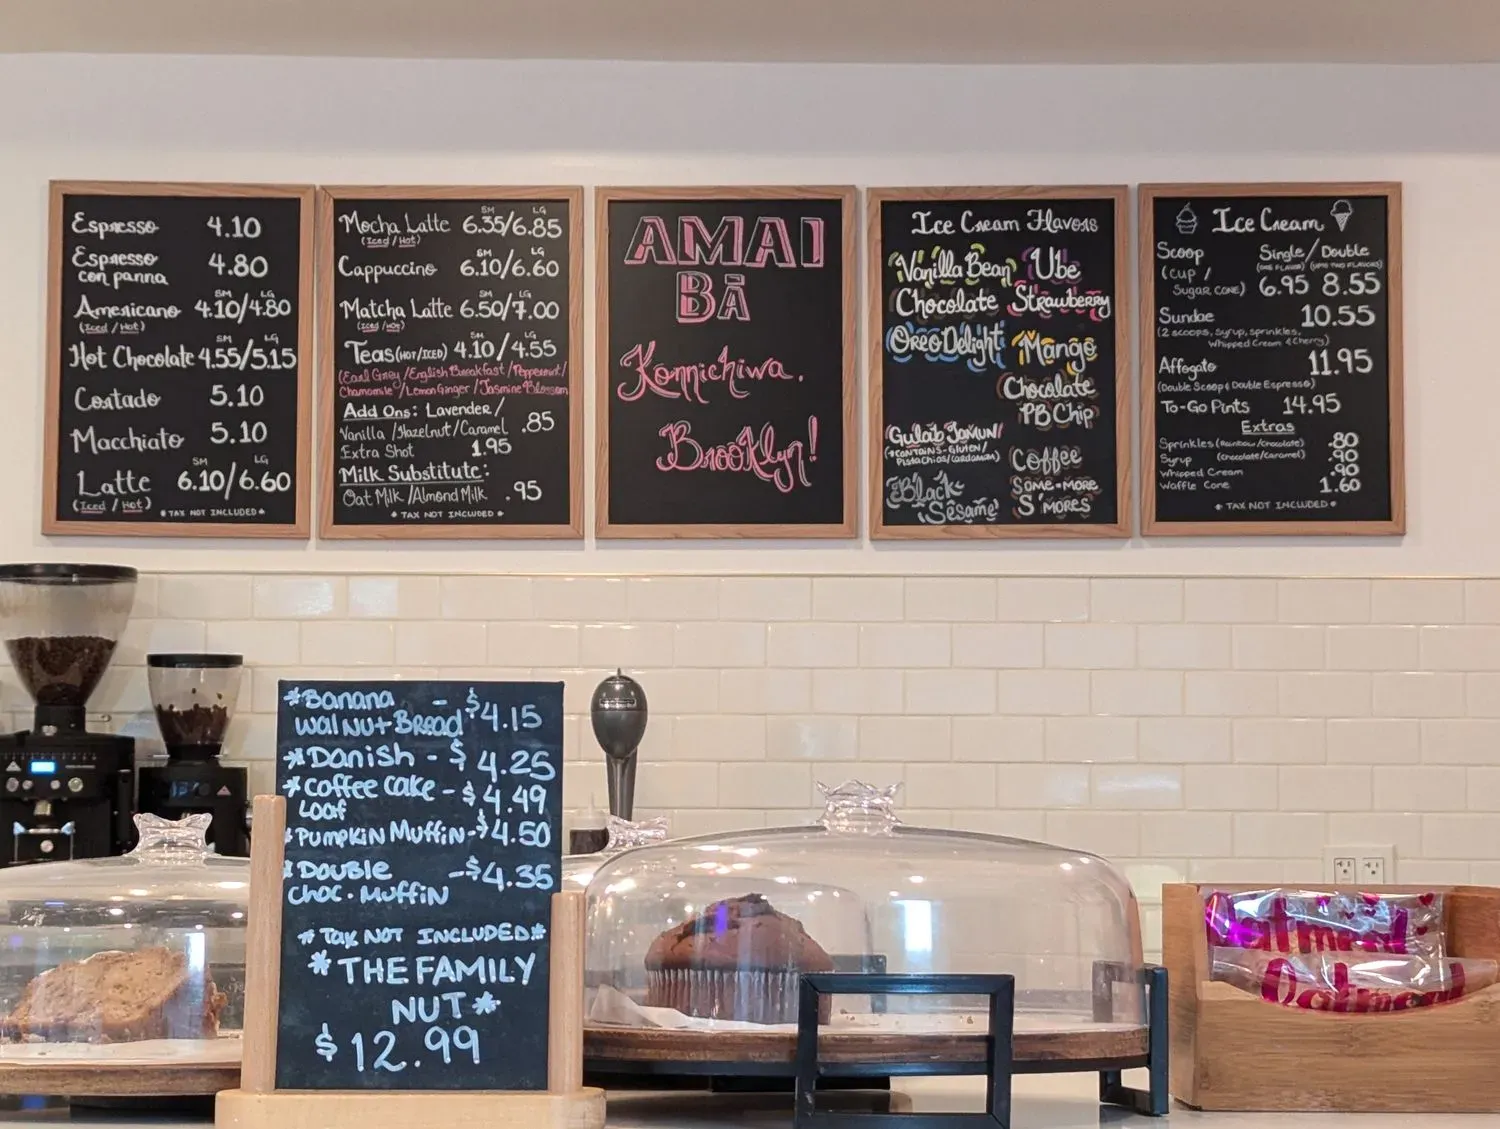 Espresso 4.10
Espresso 4.80
con panna
SM LG
Americano 4.10/4.80
(Iced / Hot)
SM LG
Hot Chocolate 4.55/5.15
Cortado 5.10
Macchiato 5.10
SM LG
Latte 6.10/6.60
(Iced / Hot)
*TAX NOT INCLUDED*
SM LG
Mocha Latte 6.35/6.85
(Iced / Hot)
SM LG
Cappuccino 6.10/6.60
SM LG
Matcha Latte 6.50/7.00
(Iced / Hot)
SM LG
Teas (HOT/ICED) 4.10/4.55
(Earl Grey / English Breakfast / Peppermint /
Chamomile / Lemon Ginger / Jasmine Blossom
Add Ons: Lavender /
Vanilla / Hazelnut / Caramel .85
Extra Shot 1.95
Milk Substitute:
Oat Milk / Almond Milk .95
* TAX NOT INCLUDED *
AMAI
BĀ
Konnichiwa.
Brooklyn!
Ice Cream Flavors
Vanilla Bean Ube
Chocolate Strawberry
Oreo Delight Mango
Chocolate
PB Chip
Gulab Jamun
(*CONTAINS-GLUTEN/
PISTACHIOS/CARDAMON)
Coffee
Black Sesame
SOME-MORE
S'MORES
Ice Cream
Scoop Single / Double
(ONE FLAVOR) (UPTO TWO FLAVORS)
(CUP /
SUGAR CONE) 6.95 8.55
Sundae 10.55
(2 SCOOPS, SYRUP, SPRINKLES,
WHIPPED CREAM & CHERRY)
Affogato 11.95
(Double Scoop & Double Espresso)
To-Go Pints 14.95
Extras
Sprinkles (Rainbow/Chocolate) .80
Syrup (Chocolate/Caramel) .90
Whipped Cream .90
Waffle Cone 1.60
* TAX NOT INCLUDED *
*Banana - $4.15
Walnut Bread
*Danish - $4.25
*Coffee Cake - $4.49
Loaf
*Pumpkin Muffin - $4.50
*Double - $4.35
Choc. Muffin
* Tax NOT INCLUDED *
*THE FAMILY
NUT*
$12.99
Oatmeal
Oatmeal